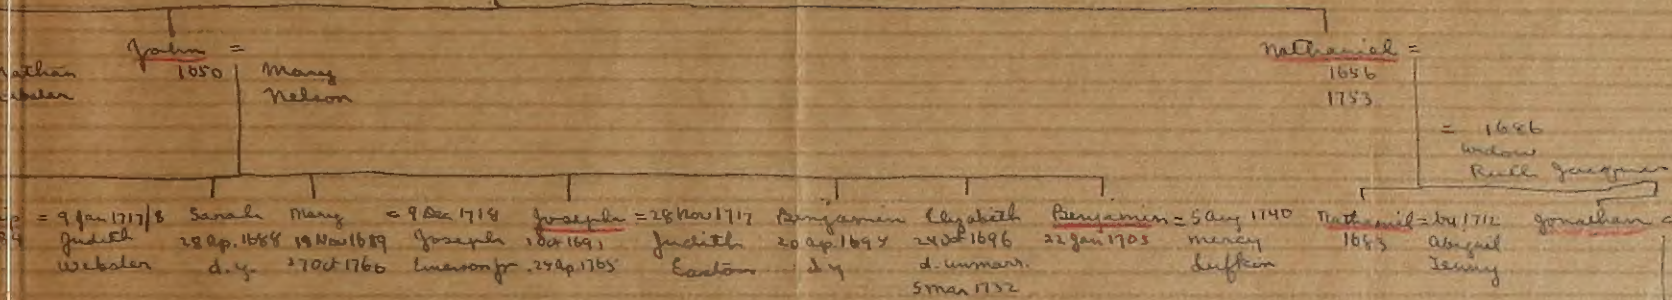 John =
1650
Mary
Nelson
Nathaniel =
1656
1753
= 1686
widow
Ruth
= 9 Jan 1717/8
Judith
Webster
Sarah
28 Ap. 1688
d.y.
Mary
19 Nov 1689
27 Oct 1766
= 9 Dec 1718
Joseph
Emerson jr.
Joseph
1 Oct 1691
29 Ap. 1765
= 28 Nov 1717
Judith
Easton
Benjamin
20 ap. 1694
d y
Elizabeth
24 Oct 1696
d. unmarr.
5 Mar 1732
Benjamin
22 Jan 1703
= 5 Aug 1740
Mercy
Lufkin
Nathaniel
1683
= by 1712
Abigail
Tenny
Jonathan